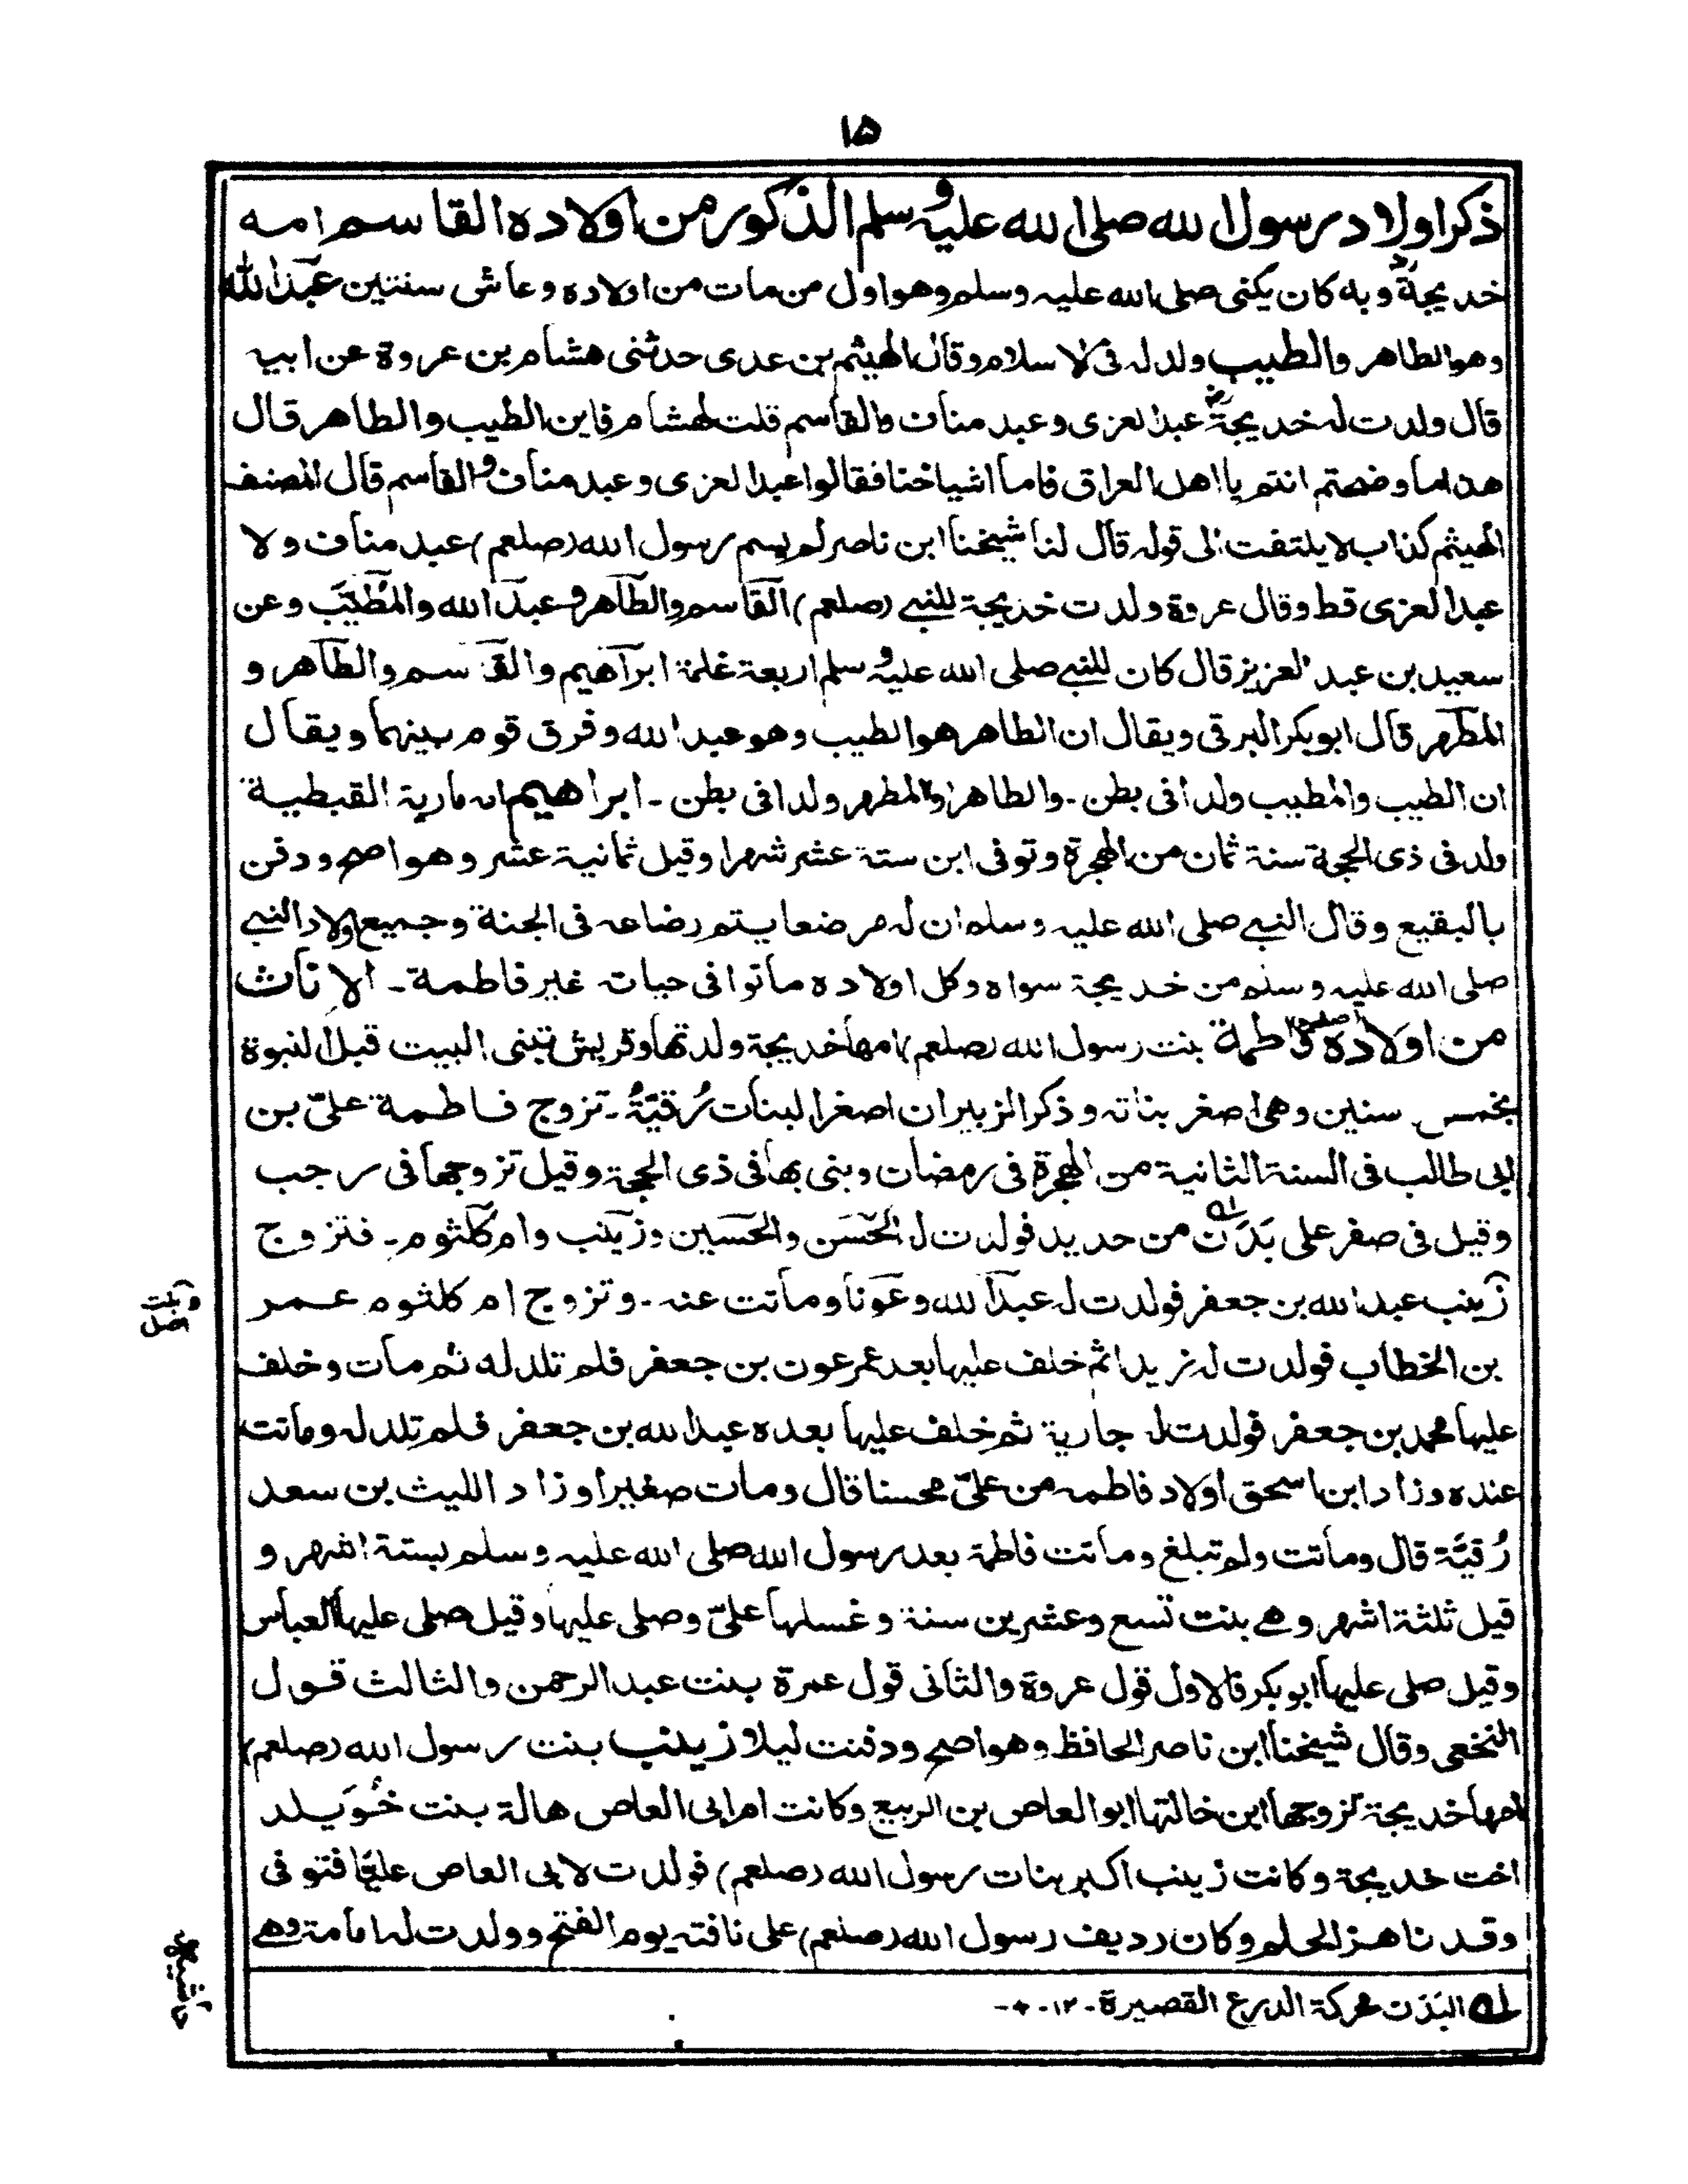 ۱۵
ذکر اولاد رسول الله صلی الله علیه وسلم الذکور من اولاده القاسم امه
خدیجة وبه کان یکنی صلی الله علیه وسلم وهو اول من مات من اولاده وعاش سنتین عبد الله
وهو الطاهر والطیب ولد له فی الاسلام وقال الهیثم بن عدی حدثنی هشام بن عروة عن ابیه
قال ولدت له خدیجة عبد العزی وعبد مناف والقاسم قلت لهشام فاین الطیب والطاهر قال
هذا ما وضعتم انتم یا اهل العراق فاما اشیاخنا فقالوا عبد العزی وعبد مناف والقاسم قال المصنف
الهیثم کذاب لا یلتفت الی قوله قال لنا شیخنا ابن ناصر لم یسم رسول الله (صلعم) عبد مناف ولا
عبد العزی قط وقال عروة ولدت خدیجة للنبی (صلعم) القاسم والطاهر وعبد الله والمطیَّب وعن
سعید بن عبد العزیز قال کان للنبی صلی الله علیه وسلم اربعة غلمة ابراهیم والقاسم والطاهر و
المطهر قال ابوبکر البرقی ویقال ان الطاهر هو الطیب وهو عبد الله وفرق قوم بینهما ویقال
ان الطیب والمطیب ولدا فی بطن ـ والطاهر والمطهر ولدا فی بطن ـ ابراهیم امه ماریة القبطیة
ولد فی ذی الحجة سنة ثمان من الهجرة وتوفی ابن ستة عشر شهرا وقیل ثمانیة عشر وهو اصح ودفن
بالبقیع وقال النبی صلی الله علیه وسلم ان له مرضعا یتم رضاعه فی الجنة وجمیع اولاد النبی
صلی الله علیه وسلم من خدیجة سواه وکل اولاده ماتوا فی حیاته غیر فاطمة ـ الاناث
من اولاده صلعم فاطمة بنت رسول الله (صلعم) امها خدیجة ولدتها وقریش تبنی البیت قبل النبوة
بخمس سنین وهی اصغر بناته وذکر الزبیر ان اصغر البنات رُقیّةُ ـ تزوج فاطمة علیّ بن
ابی طالب فی السنة الثانیة من الهجرة فی رمضان وبنی بها فی ذی الحجة وقیل تزوجها فی رجب
وقیل فی صفر علی بَدَن له من حدید فولدت له الحَسَن والحسین وزینب وام کلثوم ـ فتزوج
زینب عبد الله بن جعفر فولدت له عبد الله وعونا وماتت عنه ـ وتزوج ام کلثوم عمر
بن الخطاب فولدت له زیدا ثم خلف علیها بعد عمر عون بن جعفر فلم تلد له ثم مات وخلف
علیها محمد بن جعفر فولدت له جاریة ثم خلف علیها بعده عبد الله بن جعفر فلم تلد له وماتت
عنده وزاد ابن اسحق اولاد فاطمه من علیّ محسنا قال ومات صغیرا وزاد اللیث بن سعد
رُقیَّة قال وماتت ولم تبلغ وماتت فاطمة بعد رسول الله صلی الله علیه وسلم بستة اشهر و
قیل ثلثة اشهر وهی بنت تسع وعشرین سنة وغسلها علیّ وصلی علیها وقیل صلی علیها العباس
وقیل صلی علیها ابوبکر فالاول قول عروة والثانی قول عمرة بنت عبد الرحمن والثالث قول
النخعی وقال شیخنا ابن ناصر الحافظ وهو اصح ودفنت لیلا زینب بنت رسول الله (صلعم)
امها خدیجة تزوجها ابن خالتها ابو العاص بن الربیع وکانت ام ابی العاص هالة بنت خُوَیلد
اخت خدیجة وکانت زینب اکبر بنات رسول الله (صلعم) فولدت لابی العاص علیّا فتوفی
وقد ناهز الحلم وکان ردیف رسول الله (صلعم) علی ناقته یوم الفتح وولدت له امامة وهی
له البَدَن محرکة الدرع القصیرة ـ ۱۲ ـ